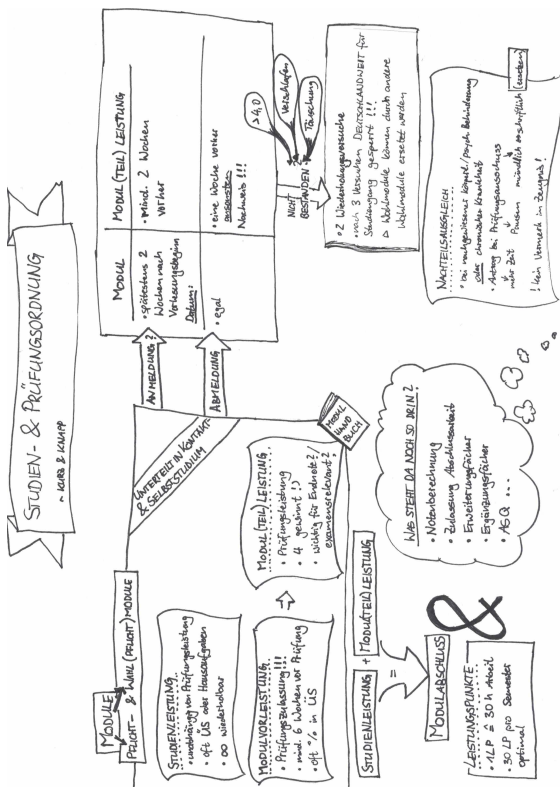 STUDIEN- & PRÜFUNGSORDNUNG
~ KURZ & KNAPP
MODULE
PFLICHT- & WAHL(PFLICHT)MODULE
UNTERTEILT IN KONTAKT-
& SELBSTSTUDIUM
STUDIENLEISTUNG
• unabhängig von Prüfungsleistung
• oft ÜS oder Hausaufgaben
• ∞ wiederholbar
MODULVORLEISTUNG
• Prüfungszulassung!!!
• mind. 6 Wochen vor Prüfung
• oft % in ÜS
MODUL(TEIL)LEISTUNG
• Prüfungsleistung
• 4 gewinnt !:)
• wichtig für Endnote?/
examensrelevant?
MODUL
HAND
BUCH
STUDIENLEISTUNG + MODUL(TEIL)LEISTUNG
=
MODULABSCHLUSS
&
LEISTUNGSPUNKTE
• 1LP ≙ 30h Arbeit
• 30 LP pro Semester
optimal
ANMELDUNG?
ABMELDUNG
MODUL
• spätestens 2
Wochen nach
Vorlesungsbeginn
Datum:
• egal
MODUL(TEIL)LEISTUNG
• Mind. 2 Wochen
vorher
• eine Woche vorher
ansonsten
Nachweis!!!
>4,0
Verschlafen
Täuschung
NICHT
BESTANDEN
• 2 Wiederholungsversuche
• nach 3 Versuchen DEUTSCHLANDWEIT für
Studiengang gesperrt!!!
Wahlmodule können durch andere
Wahlmodule ersetzt werden
WAS STEHT DA NOCH SO DRIN?
• Notenberechnung
• Zulassung Abschlussarbeit
• Erweiterungsfächer
• Ergänzungsfächer
• ASQ ...
NACHTEILSAUSGLEICH
• bei nachgewiesener körperl./psych. Behinderung
oder chronischer Krankheit
• Antrag bei Prüfungsausschuss
mehr Zeit Pausen mündlich schriftlich
! kein Vermerk in Zeugnis!